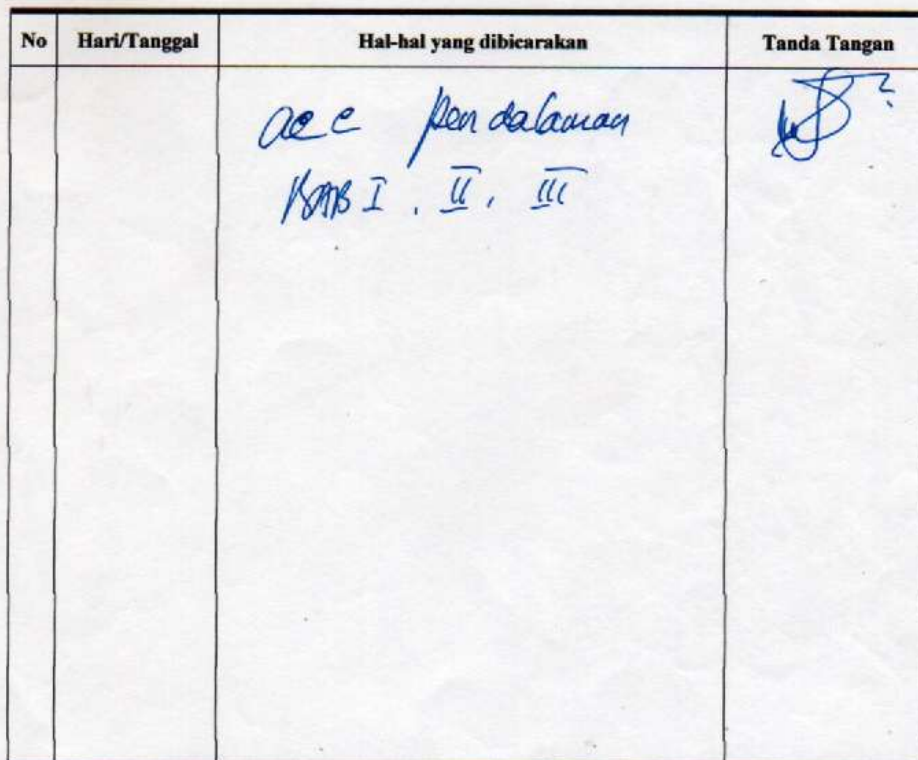 No Hari/Tanggal Hal-hal yang dibicarakan Tanda Tangan
acc pendalaman
BAB I, II, III